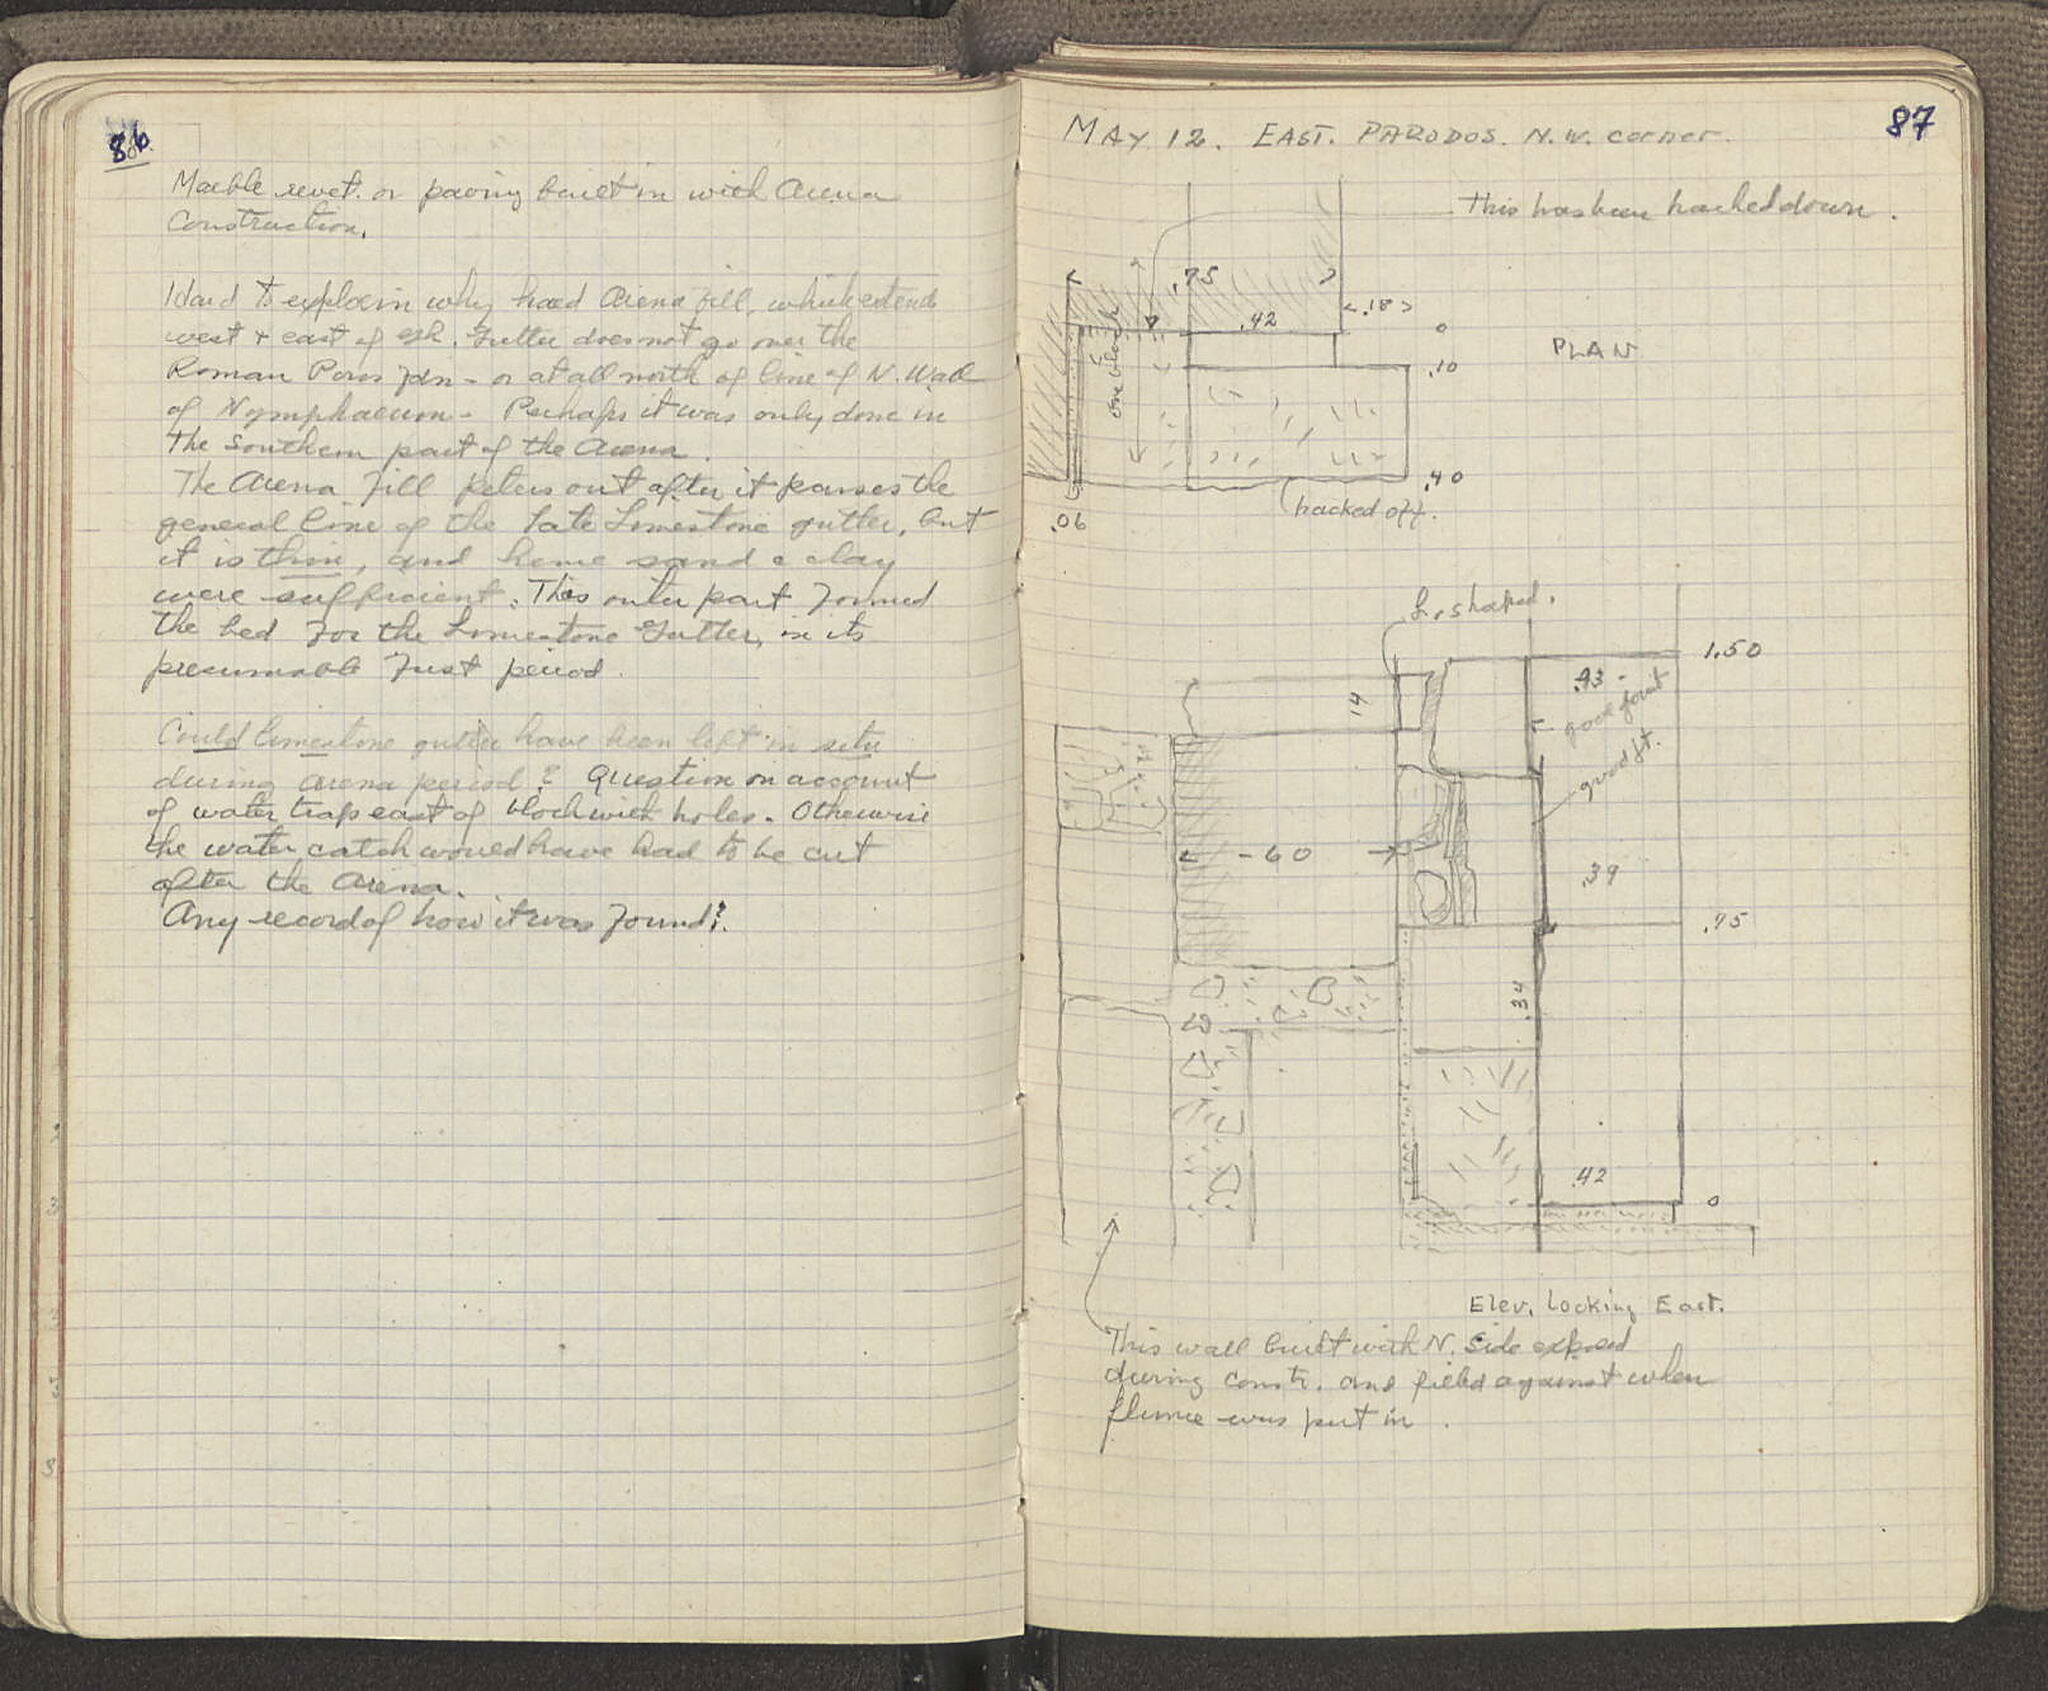 86
Marble revet. or paving built in with Arena
Construction.
Hard to explain why hard Arena fill, which extends
west & east of Gk. Gutter does not go over the
Roman Poros fdn - or at all north of line of N. Wall
of Nymphaeum - Perhaps it was only done in
the southern part of the Arena.
The Arena Fill peters out after it passes the
general line of the late Limestone gutter, but
it is thin, and some sand & clay
were sufficient. This outer part formed
the bed for the Limestone Gutter, in its
presumable first period.
Could limestone gutter have been left in situ
during Arena period? Question on account
of water trap east of block with holes. Otherwise
the water catch would have had to be cut
after the Arena.
Any record of how it was found?
87
MAY 12. EAST. PARODOS. N.W. corner.
This has been hacked down.
.75
.18
.42
0
one block
PLAN
.10
.40
hacked off.
.06
L. shaped.
1.50
.43
good joint
14
good jt.
.60
.39
.75
.34
.42
0
Elev. Looking East.
This wall built with N. side exposed
during constr. and filled against when
flume was put in.